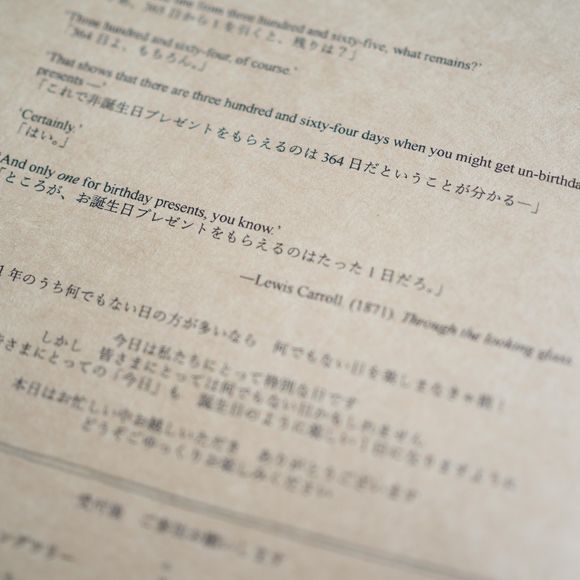 one from three hundred and sixty-five, what remains?'
365日から1を引くと、残りは？」
'Three hundred and sixty-four, of course.'
「364日よ、もちろん。」
'That shows that there are three hundred and sixty-four days when you might get un-birthda
presents —'
「これで非誕生日プレゼントをもらえるのは 364 日だということが分かる―」
'Certainly.'
「はい。」
'And only one for birthday presents, you know.'
「ところが、お誕生日プレゼントをもらえるのはたった 1 日だろ。」
—Lewis Carroll. (1871). Through the looking glass.
1 年のうち何でもない日の方が多いなら 何でもない日を楽しまなきゃ損！
しかし 今日は私たちにとって特別な日です
皆さまにとっては何でもない日かもしれません
皆さまにとっての「今日」も 誕生日のように楽しい 1 日になりますように
本日はお忙しい中お越しいただき ありがとうございます
どうぞごゆっくりお楽しみください